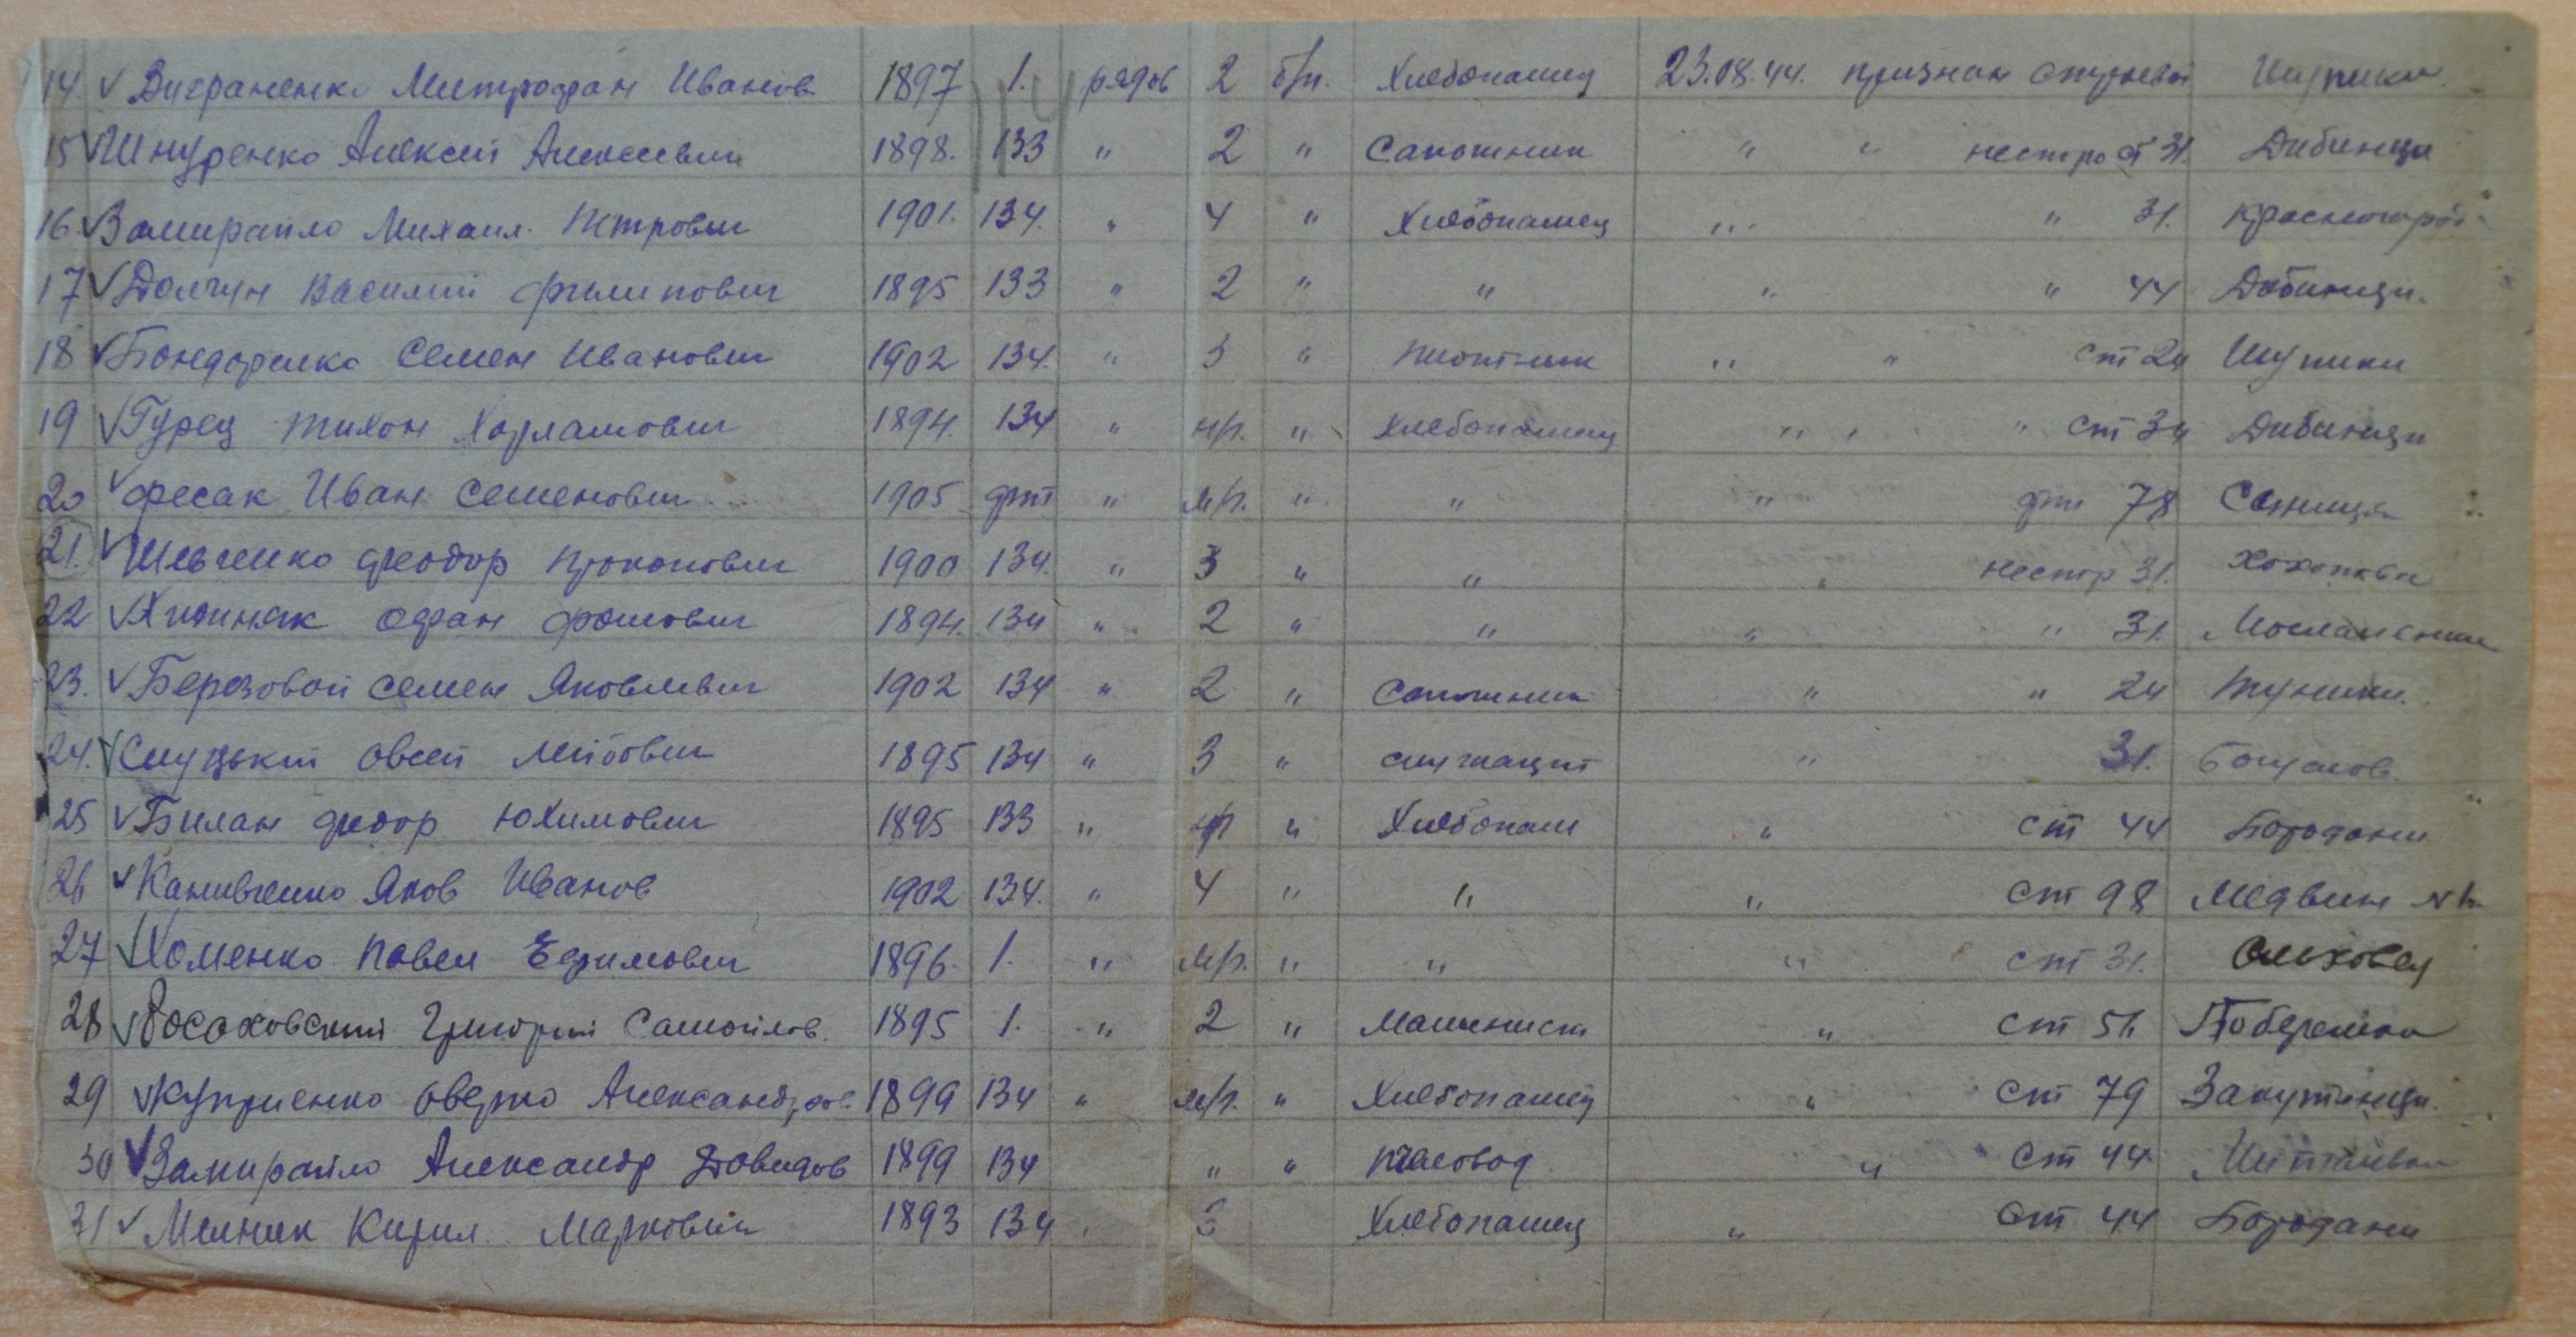 14. Виграненко Митрофан Иванов 1897 1. рядов 2 б/п. Хлебопашец 23.08.44. признан строевой Шупики
15 Шнуренко Алексей Алексеевич 1898. 133 " 2 " Сапожник " " нестро ст 31. Дибинци
16 Замирайло Михаил. Петрович 1901. 134. " 4 " Хлебопашец " " 31. Красногород
17 Долгун Василий Филипович 1895 133 " 2 " " " " 44 Дибинци.
18 Бондаренко Семен Иванович 1902 134. " 3 " Плотник " " ст 24 Шупики
19 Гурец Тихон Харламович 1894. 134 " н/г. " Хлебопашец " " ст 34 Дибинци
20 Фесак Иван Семенович 1905 " м/г. " " " 78 Синица
21. Шевченко Феодор Прокопович 1900 134. " 3 " " " нестр 31. Хохитва
22 Офан Фомович 1894. 134 " 2 " " " " 31.
23. Березовой Семен Яковлевич 1902 134 " 2 " Сапожник " " 24
24. Слуцький Овсей Лейбович 1895 134 " 3 " служащий " 31. Богуслов.
25 Билан Федор Юхимович 1895 133 " н/г " Хлебопаш " ст 44. Бородани
26 Канивченко Яков Иванов 1902 134. " 4 " " " ст 98 Медвин
27 Хоменко Павел Ефимович 1896. 1. " м/г. " " " ст 31. Ольховец
28 Росоховский Григорий Самойлов. 1895 1. " 2 " Машинист " ст 51. Побережка
29 Куприенко Оверко Александров. 1899 134 " м/г. " Хлебопашец " ст 79 Закутинци.
30 Замирайло Александр Довидов 1899 134 " " пчаловод " ст 44.
31 Мелник Кирил Маркович 1893 134 . 3 Хлебопашец " ст 44 Бородани